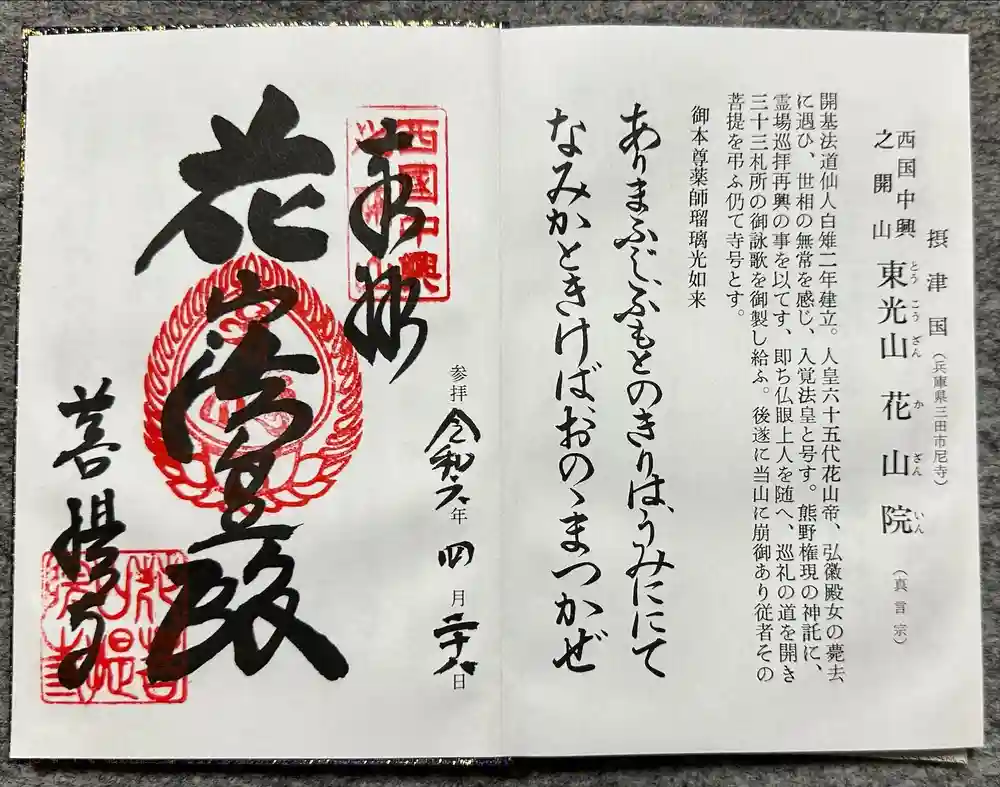 摂津国（兵庫県三田市尼寺）
西国中興
之開山
東光山 花山院（真言宗）
とうこうざん かざんいん
開基法道仙人白雉二年建立。人皇六十五代花山帝、弘徽殿女の薨去
に遇ひ、世相の無常を感じ、入覚法皇と号す。熊野権現の神託に、
霊場巡拝再興の事を以てす、即ち仏眼上人を随へ、巡礼の道を開き
三十三札所の御詠歌を御製し給ふ。後遂に当山に崩御あり従者その
菩提を弔ふ仍て寺号とす。
御本尊薬師瑠璃光如来
ありまふじふもとのきりは、うみににて
なみかときけばおのゝまつかぜ
西國中興
奉拝
参拝 令和六年 四月二十八日
花山法皇殿
菩提寺